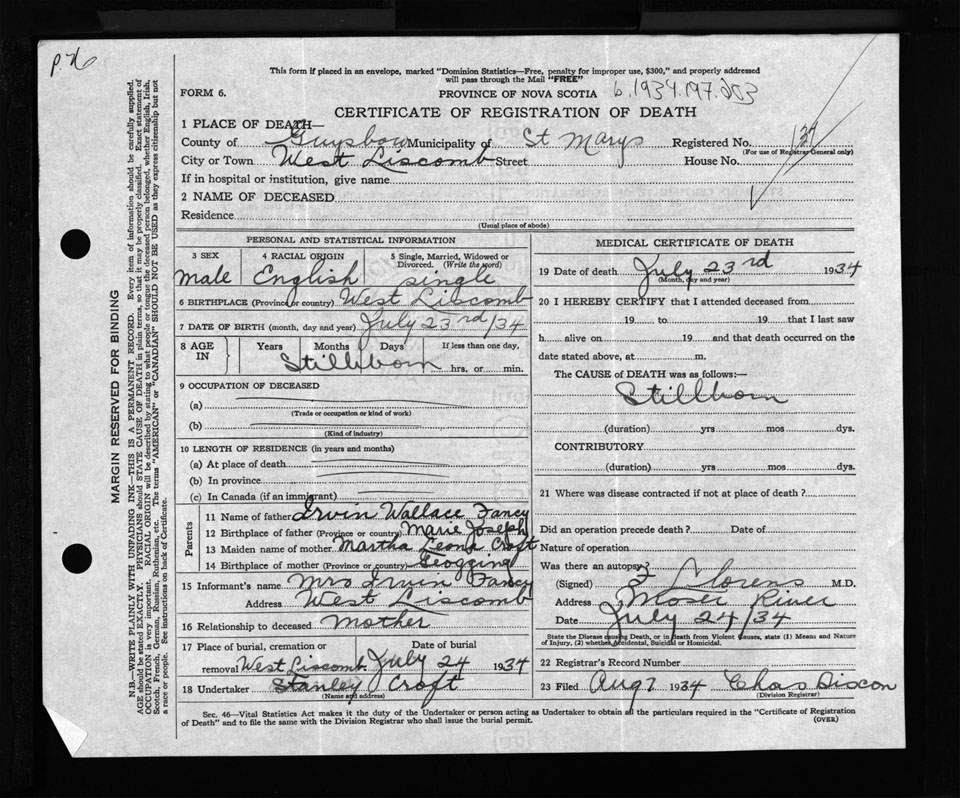 This form if placed in an envelope, marked "Dominion Statistics—Free, penalty for improper use, $300," and properly addressed
will pass through the Mail "FREE"
FORM 6.
PROVINCE OF NOVA SCOTIA
CERTIFICATE OF REGISTRATION OF DEATH
1 PLACE OF DEATH—
County of Guysboro Municipality of St Marys Registered No. 137
(For use of Registrar General only)
City or Town West Liscomb Street House No.
If in hospital or institution, give name
2 NAME OF DECEASED
Residence
(Usual place of abode)
PERSONAL AND STATISTICAL INFORMATION
3 SEX 4 RACIAL ORIGIN 5 Single, Married, Widowed or Divorced. (Write the word)
male English single
6 BIRTHPLACE (Province or country) West Liscomb
7 DATE OF BIRTH (month, day and year) July 23rd/34
8 AGE IN Years Months Days If less than one day,
Stillborn hrs. or min.
9 OCCUPATION OF DECEASED
(a)
(Trade or occupation or kind of work)
(b)
(Kind of industry)
10 LENGTH OF RESIDENCE (in years and months)
(a) At place of death
(b) In province
(c) In Canada (if an immigrant)
Parents
11 Name of father Irvin Wallace Fancy
12 Birthplace of father (Province or country) Marie Joseph
13 Maiden name of mother Martha Leona Croft
14 Birthplace of mother (Province or country)
15 Informant's name Mrs Irvin Fancy
Address West Liscomb
16 Relationship to deceased Mother
17 Place of burial, cremation or Date of burial
removal West Liscomb. July 24 1934
18 Undertaker Stanley Croft
(Name and address)
MEDICAL CERTIFICATE OF DEATH
19 Date of death July 23rd 1934
(Month, day and year)
20 I HEREBY CERTIFY that I attended deceased from
19 to 19 that I last saw
h alive on 19 and that death occurred on the
date stated above, at m.
The CAUSE of DEATH was as follows:—
Stillborn
(duration) yrs mos dys.
CONTRIBUTORY
(duration) yrs mos dys.
21 Where was disease contracted if not at place of death?
Did an operation precede death? Date of
Nature of operation
Was there an autopsy?
(Signed) M.D.
Address Moser River
Date July 24/34
State the Disease causing Death, or in Death from Violent Causes, state (1) Means and Nature
of Injury, (2) whether Accidental, Suicidal or Homicidal.
22 Registrar's Record Number
23 Filed Aug 7 1934 Chas Dixon
(Division Registrar)
Sec. 46—Vital Statistics Act makes it the duty of the Undertaker or person acting as Undertaker to obtain all the particulars required in the "Certificate of Registration
of Death" and to file the same with the Division Registrar who shall issue the burial permit.
(OVER)
MARGIN RESERVED FOR BINDING
N.B.—WRITE PLAINLY WITH UNFADING INK—THIS IS A PERMANENT RECORD. Every item of information should be carefully supplied.
AGE should be stated EXACTLY. PHYSICIANS should STATE CAUSE OF DEATH in plain terms, so that it may be properly classified. Exact statement of
OCCUPATION is very important. RACIAL ORIGIN will be described by stating to what people or tongue the deceased person belonged, whether English, Irish,
Scotch, French, German, Russian, Ruthenian, etc. The terms "AMERICAN" or "CANADIAN" SHOULD NOT BE USED as they express citizenship but not
a race or people. See instructions on back of Certificate.